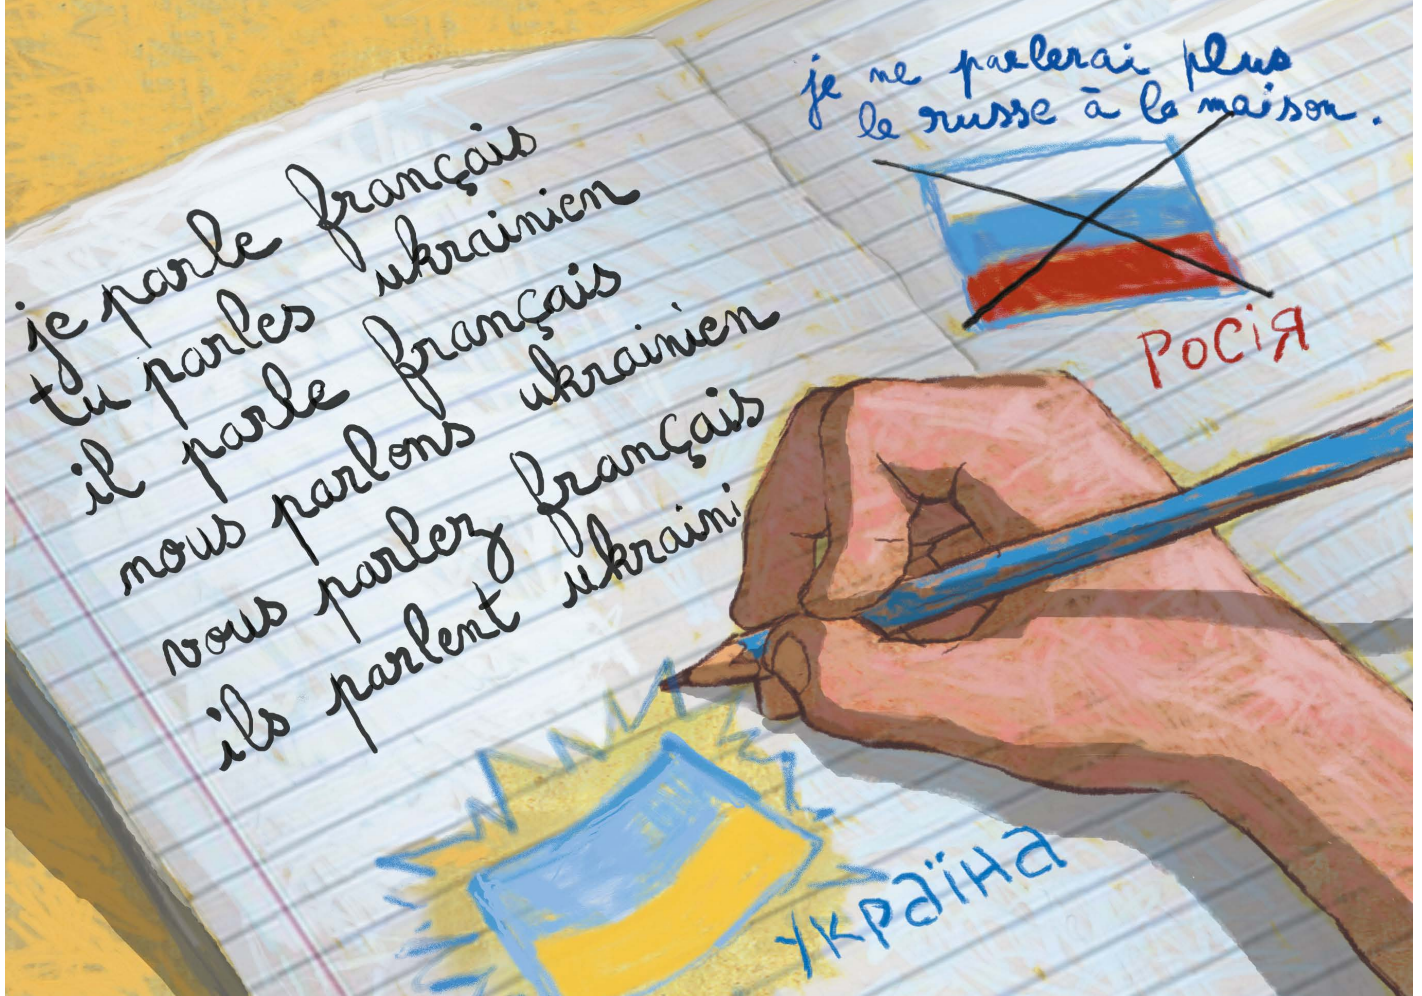 je parle français
tu parles ukrainien
il parle français
nous parlons ukrainien
vous parlez français
ils parlent ukraini
je ne parlerai plus
le russe à la maison.
Росія
Україна